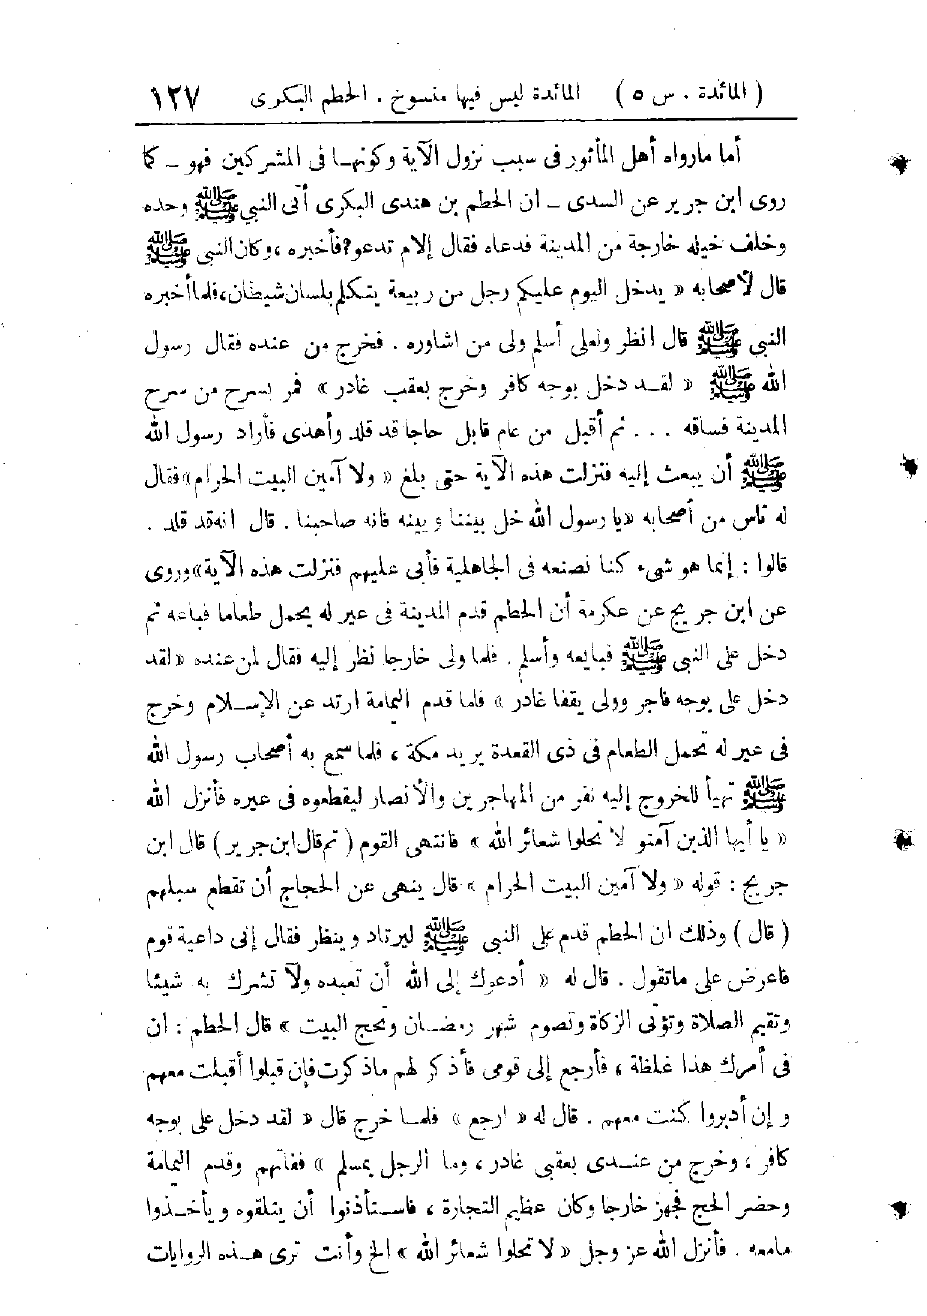 ( المائدة . س ٥ ) المائدة ليس فيها منسوخ . الحطم البكرى ١٢٧
أما مارواه أهل المأثور فى سبب نزول الآية وكونهـا فى المشركين فهو ــ كما
روى ابن جرير عن السدى ــ ان الحطم بن هندى البكرى أتى النبي ﷺ وحده
وخلف خيله خارجة من المدينة فدعاه فقال إلام تدعو؟ فأخبره ، وكان النبى ﷺ
قال لأصحابه « يدخل اليوم عليكم رجل من ربيعة يتكلم بلسان شيطان ، فلما أخبره
النبى ﷺ قال انظر ولعلى أسلم ولى من اشاوره . فخرج من عنده فقال رسول
الله ﷺ « لقـد دخل بوجه كافر وخرج بعقب غادر » فمر بسرح من سرح
المدينة فساقه . . . ثم أقبل من عام قابل حاجا قد قلد وأهدى فأراد رسول الله
ﷺ أن يبعث إليه فنزلت هذه الآية حتى بلغ « ولا آمين البيت الحرام » فقال
له ناس من أصحابه « يا رسول الله خل بيننا وبينه فانه صاحبنا . قال انه قد قلد .
قالوا : إنما هو شىء كنا نصنعه فى الجاهلية فأبى عليهم فنزلت هذه الآية » وروى
عن ابن جريج عن عكرمة أن الحطم قدم المدينة فى عير له يحمل طعاما فباعه ثم
دخل على النبى ﷺ فبايعه وأسلم . فلما ولى خارجا نظر إليه فقال لمن عنده « لقد
دخل على بوجه فاجر وولى بقفا غادر » فلما قدم اليمامة ارتد عن الإسـلام وخرج
فى عير له تحمل الطعام فى ذى القعدة يريد مكة ، فلما سمع به أصحاب رسول الله
ﷺ تهيأ للخروج إليه نفر من المهاجرين والأنصار ليقطعوه فى عيره فأنزل الله
« يا أيها الذين آمنو لا تحلوا شعائر الله » فانتهى القوم ( ثم قال ابن جرير ) قال ابن
جريج : قوله « ولا آمين البيت الحرام » قال ينهى عن الحجاج أن تقطع سبلهم
( قال ) وذلك ان الحطم قدم على النبى ﷺ ليرتاد وينظر فقال إنى داعية قوم
فاعرض على ماتقول . قال له « أدعوك إلى الله أن تعبده ولا تشرك به شيئا
وتقيم الصلاة وتؤتى الزكاة وتصوم شهر رمضـان وتحج البيت » قال الحطم : ان
فى أمرك هذا غلظة ، فأرجع إلى قومى فأذكر لهم ماذكرت فإن قبلوا أقبلت معهم
وإن أدبروا كنت معهم . قال له « ارجع » فلمـا خرج قال « لقد دخل على بوجه
كافر ، وخرج من عنـدى بعقبى غادر ، وما الرجل بمسلم » ففاتهم وقدم اليمامة
وحضر الحج فجهز خارجا وكان عظيم التجارة ، فاسـتأذنوا أن يتلقوه ويأخـذوا
مامعه . فأنزل الله عز وجل « لا تحلوا شعائر الله » الخ وأنت ترى هـذه الروايات